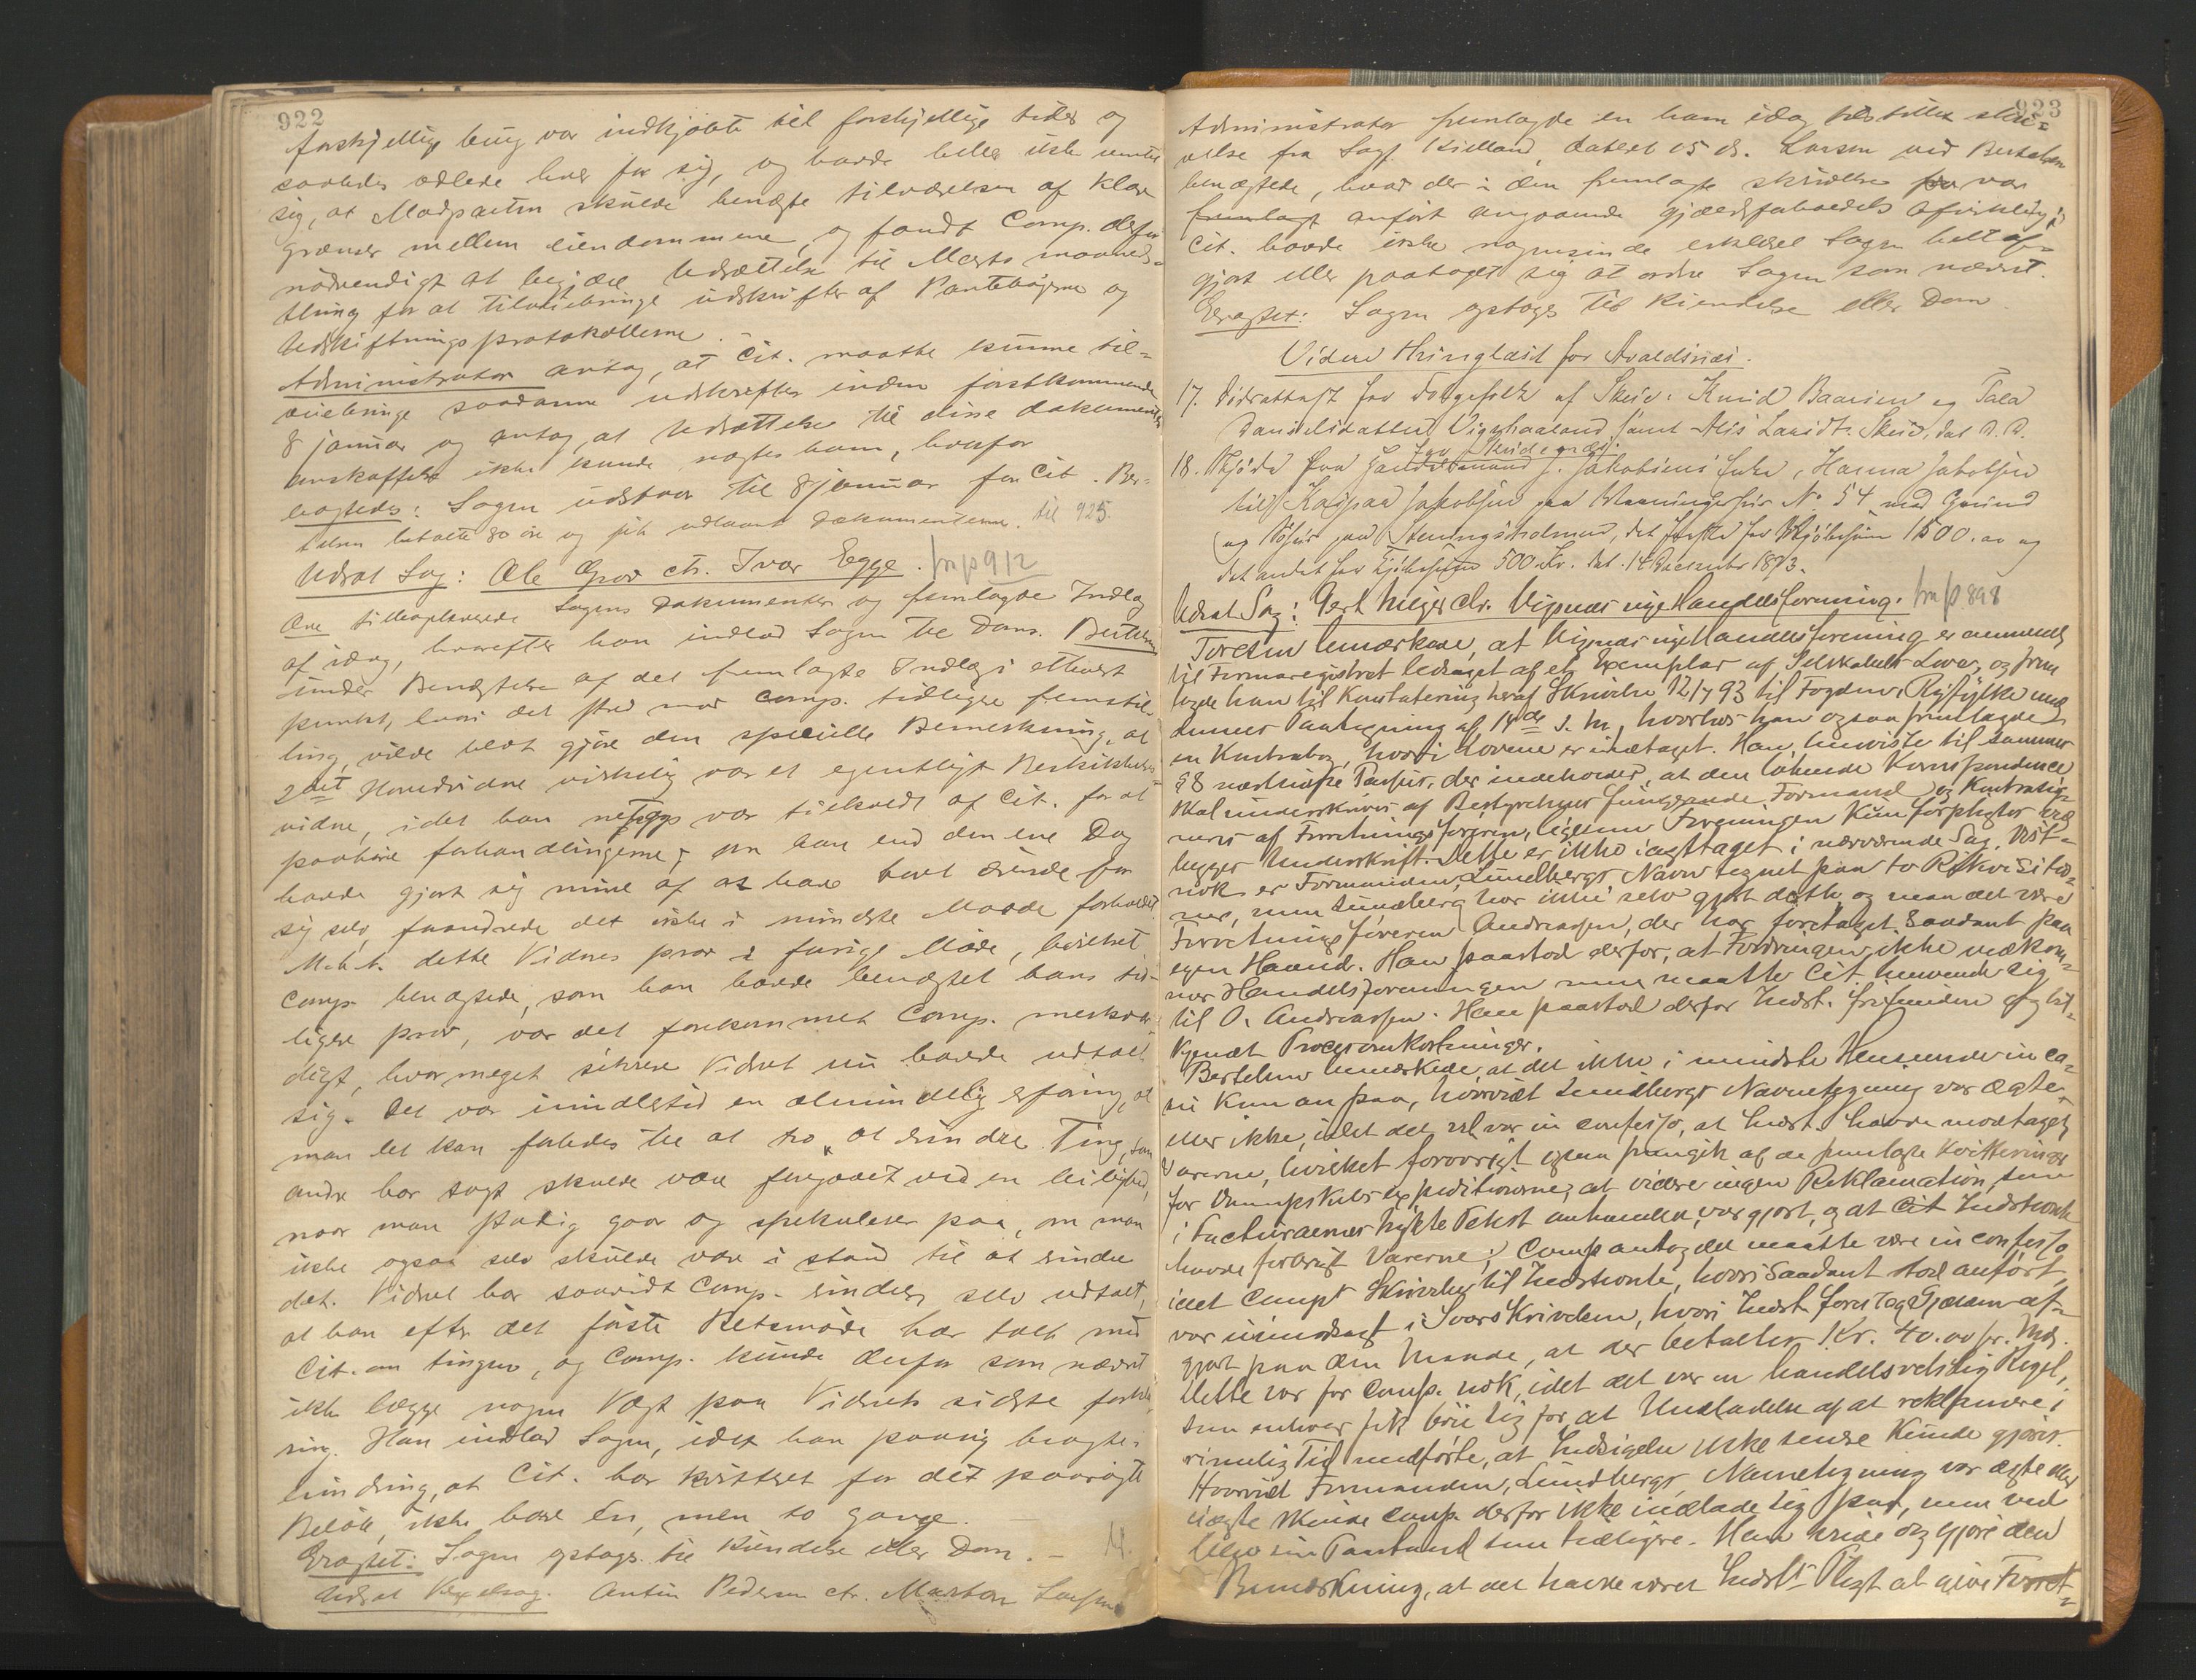 922
forskjellige brug var indkjøbte til forskjellige tider og
saaledes ødlede hver for sig, og havde heller ikke ventet
sig, at Modparten skulde benægte tilværelsen af klare
grænser mellem eiendommene, og fandt Comp. derfor
nødvendigt at begjære Udsættelse til Marts maaneds-
thing for at tilveiebringe udskrifter af Pantebøgerne og
Udskiftningsprotokollerne.
Administrator antog, at Cit. maatte kunne til-
veiebringe saadanne udskrifter inden førstkommende
8 januar og antog, at Udsættelse til disse dokumenters
anskaffelse ikke kunde nægtes ham, hvorfor
eragtedes: Sagen udstaar til 8 januar for Cit. Ber-
telsen betalte 80 øre og fik udlaant Dokumenterne. til 925
Udsat Sag: Ole Grov ctr. Ivar Egge. fra p 912
tilbageleverede Sagens Dokumenter og fremlagde Indlæg
af idag, hvorefter han indlod Sagen til Doms. Bertelsen
under Benægtelse af det fremlagte Indlæg i ethvert
punkt, hvori det stred mod Comp. tidligere fremstil-
ling, vilde blot gjøre den specielle Bemerkning, at
2det Hovedvidne virkelig var et egentligt Beskikkelses-
vidne, idet han netop var tilkaldt af Cit. for at
paahøre forhandlingerne; om han end den ene Dag
havde gjort sig mine af at have havt ærinde for
sig selv, forandrede det ikke i mindste Maade forholdet.
M.h.t. dette Vidnes prov i forrige Møde, hvilket
Comp. benægtede, som han havde benægtet hans tid-
ligere prov, var det forekommet Comp. merkvær-
digt, hvor meget sikrere Vidnet nu havde udtalt
sig. Det var imidlertid en almindelig erfaring, at
man let kan forledes til at tro at erindre Ting, som
andre har sagt skulde være foregaaet ved en leilighed,
naar man stadig gaar og spekulerer paa, om man
ikke ogsaa selv skulde være i stand til at erindre
det. Vidnet har saavidt Comp. erindrer, selv udtalt,
at han efter det første Retsmøde har talt med
Cit. om tingen, og Comp. kunde derfor som nævnt
ikke lægge nogen Vægt paa Vidnets sidste forkla-
ring. Han indlod Sagen, idet han paany bragte i
Erindring, at Cit. har kvitteret for det paasøgte
Beløb, ikke bare én, men to gange.
Eragtet: Sagen optages til Kjendelse eller Dom.
Udsat Vexelsag. Antin Pedersen ctr. Morten Larsen
923
Administrator fremlagde en ham idag tilstillet skri-
velse fra Sagf. Kielland, dateret 15 ds. Larsen ved Bertelsen
benægtede, hvad der i den fremlagte skrivelse var
fremlagt anført angaaende gjældsforholdets afvikling;
Cit. havde ikke nogensinde erklæret Sagen helt af-
gjort eller paataget sig at ordne Sagen som nævnt.
Eragtet: Sagen optages til Kjendelse eller Dom
Videre thinglæst for Avaldsnæs.
17. fra Folgefolk af Skeie: Knud Baarsen og Tala
Danielsdatter Vigghaaland samt Lauridts. Skeie, dat. D.D.
18. Skjøde fra Handelsmand J. Jakobsens Enke, Hanna Jakobsen
til Kaspar Jakobsen paa Vaaningshus No. 54 med Grund
og Søhus paa Steningsholmen, det første for Kjøbesum 1500.00 og
det andet for Kjøbesum 500 Kr. dat. 14 December 1893.
Udsat Sag: Gert Meijer ctr. Vignæs nye Handelsforening. fra p 898
Toresen bemærkede, at Vignæs nye Handelsforening er anmeldt
til Firmaregistret ledsaget af et Exemplar af Selskabets Love, og frem
lagde han til Konstatering heraf Skrivelse 12/7 93 til Fogden i Ryfylke med
dennes Paategning af 14de s. M., hvorhos han ogsaa fremlagde
en Kontrabog, hvori Lovene er indtaget. Han henviste til sammes
§ 8 næstsidste Passus, der indeholder, at den løbende Korrespondence
skal underskrives af Bestyrelsens fungerende Formand og Kontrasig-
neres af Forretningsføreren, ligesom Foreningen kun forpligtes ved
begges Underskrift. Dette er ikke iagttaget i nærværende Sag. Vist-
nok er Formanden, Lundbergs Navn tegnet paa to Rekvisitio-
ner, men Lundberg har ikke selv gjort dette, og maa det være
Forretningsføreren Andreassen, der har foretaget Saadant paa
egen Haand. Han paastod derfor, at Fordringen ikke vedkom-
mer Handelsforeningen men maatte Cit. henvende sig
til O. Andreassen. Han paastod derfor Indst. frifunden og til-
kjendt Procesomkostninger.
Bertelsen bemærkede, at det ikke i mindste Henseende in ca-
su kom an paa, hvorvidt Lundbergs Navnetegning var ægte
eller ikke, idet det vel var in confesso, at Indst. havde modtaget
Varerne, hvilket forøvrigt ogsaa fremgik af de fremlagte Kvitteringer
for Dampskibsexpeditionerne, at videre ingen Reklamation, som
i Facturaernes trykte Tekst omhandlet, var gjort, og at Indstevnte
havde forbrugt Varerne; Comp. antog det maatte være in confesso
idet Comps Skrivelse til Indstevnte, hvori Saadant stod anført,
var uimodsagt i Svarskrivelsen, hvori Indst. foreslog Gjælden af-
gjort paa den Maade, at der betaltes Kr. 40.00 pr. Md.
Dette var for Comp. nok, idet det var en handelsretslig Regel,
som enhver fik bøie sig for, at Undladelse af at reklamere i
rimelig Tid medførte, at Indsigelse ikke senere kunde gjøres.
Hvorvidt Formanden, Lundbergs, Navnetegning var ægte eller
uægte skulde Comp. derfor ikke indlade sig paa, men ved
blev sin Paastand som tidligere. Han vilde og gjøre den
Bemærkning, at det havde været Indsts Pligt at give Forret-